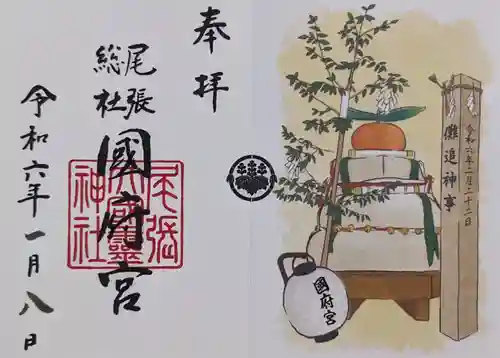 奉拝
尾張
総社
國府宮
尾張
大國霊
神社
令和六年一月八日
令和六年二月二十二日
儺追神事
國府宮